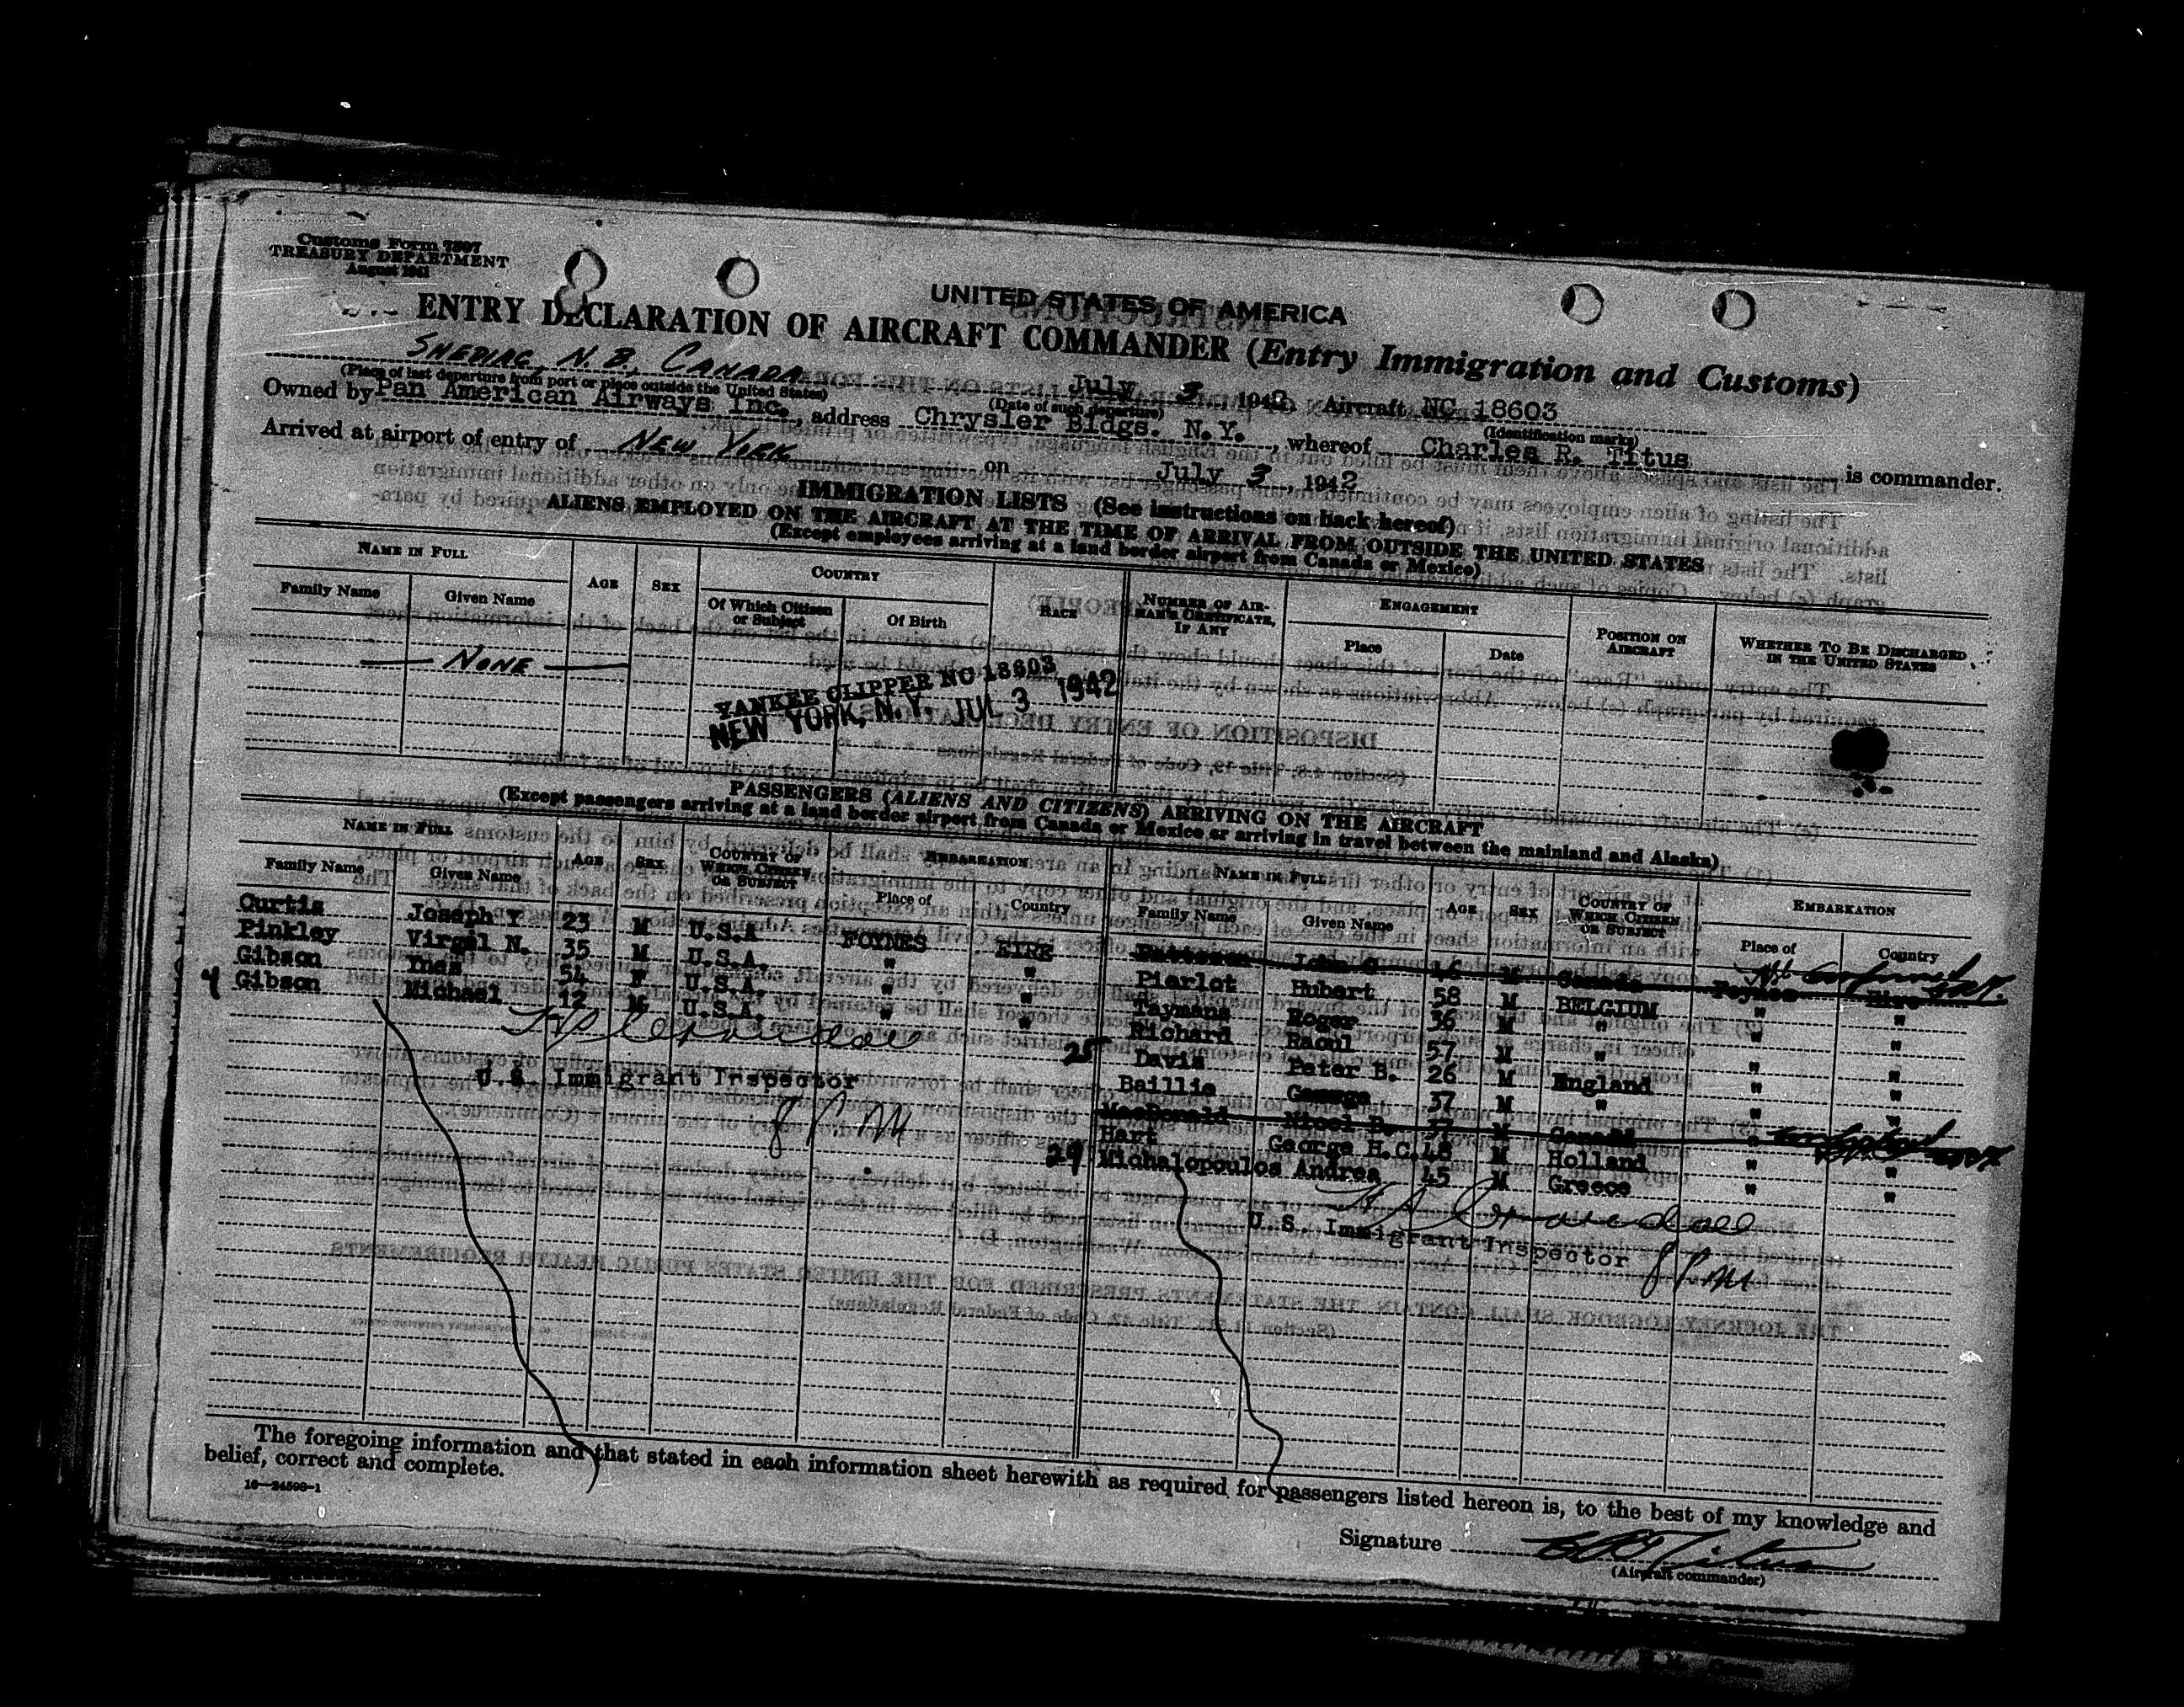 Customs Form 7507
TREASURY DEPARTMENT
August 1941
UNITED STATES OF AMERICA
ENTRY DECLARATION OF AIRCRAFT COMMANDER (Entry Immigration and Customs)
SHEDIAC, N.B., CANADA July 3, 1942. Aircraft NC 18603
(Place of last departure from port or place outside the United States) (Date of such departure) (Identification marks)
Owned by Pan American Airways Inc., address Chrysler Bldgs. N.Y., whereof Charles R. Titus is commander.
Arrived at airport of entry of NEW YORK on July 3, 1942
IMMIGRATION LISTS (See instructions on back hereof)
ALIENS EMPLOYED ON THE AIRCRAFT AT THE TIME OF ARRIVAL FROM OUTSIDE THE UNITED STATES
(Except employees arriving at a land border airport from Canada or Mexico)
NAME IN FULL AGE SEX COUNTRY RACE NUMBER OF AIRMAN'S CERTIFICATE, IF ANY ENGAGEMENT POSITION ON AIRCRAFT WHETHER TO BE DISCHARGED IN THE UNITED STATES
Family Name Given Name Of Which Citizen or Subject Of Birth Place Date
— NONE —
YANKEE CLIPPER NC 18603
NEW YORK, N.Y. JUL 3 1942
PASSENGERS (ALIENS AND CITIZENS) ARRIVING ON THE AIRCRAFT
(Except passengers arriving at a land border airport from Canada or Mexico or arriving in travel between the mainland and Alaska)
NAME IN FULL AGE SEX COUNTRY OF WHICH CITIZEN OR SUBJECT EMBARKATION
Family Name Given Name Place of Country
Curtis Joseph Y 23 M U.S.A FOYNES EIRE
Pinkley Virgil N. 35 M U.S.A. " "
Gibson Ines 54 F U.S.A. " "
4 Gibson Michael 12 M U.S.A. " "
U.S. Immigrant Inspector
8 P.M
NAME IN FULL AGE SEX COUNTRY OF WHICH CITIZEN OR SUBJECT EMBARKATION
Family Name Given Name Place of Country
John 46 M Canada Foynes Eire
Pierlot Hubert 58 M BELGIUM " "
Taymans Roger 36 M " " "
Richard Raoul 57 M " " "
25 Davis Peter B. 26 M England " "
Baillie George 37 M " " "
MacDonald 37 M Canada "
Hart George H.C. 48 M Holland " "
29 Michalopoulos Andrea 45 M Greece " "
U.S. Immigrant Inspector 8 P.M
The foregoing information and that stated in each information sheet herewith as required for passengers listed hereon is, to the best of my knowledge and
belief, correct and complete.
16—24598-1
Signature C R Titus
(Aircraft commander)